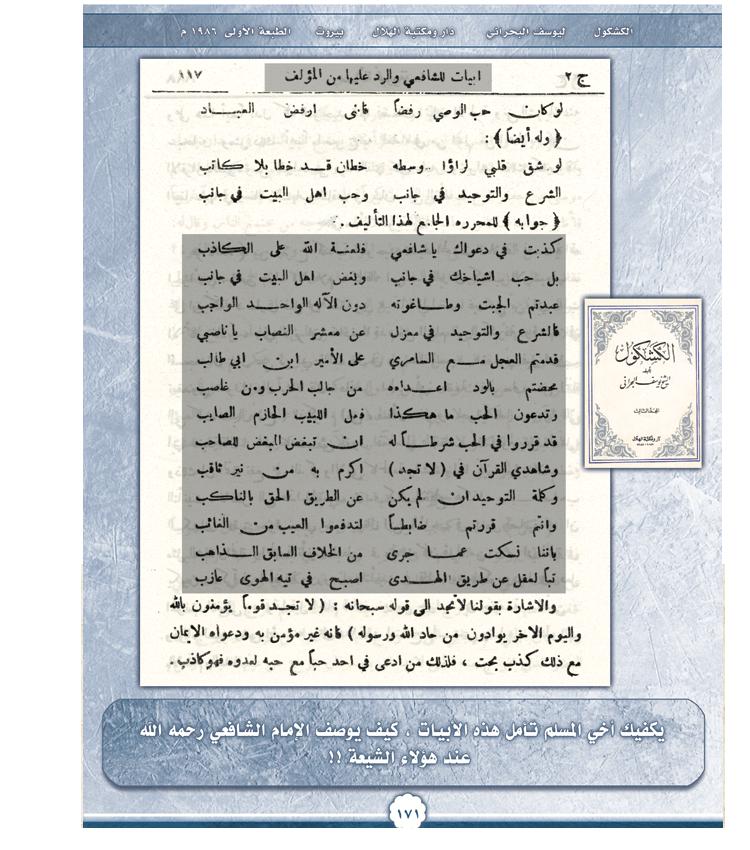 الكشكول ليوسف البحراني دار ومكتبة الهلال بيروت الطبعة الأولى ١٩٨٦ م
ج ٢ ابيات للشافعي والرد عليها من المؤلف ١١٧
لو كان حب الوصي رفضاً فانى ارفض العباد
﴿ وله أيضاً ﴾ :
لو شق قلبي لراؤا وسطه خطان قد خطا بلا كاتب
الشرع والتوحيد في جانب وحب اهل البيت في جانب
﴿ جوابه ﴾ للمحرره الجامع لهذا التأليف .
كذبت في دعواك يا شافعي فلعنة الله على الكاذب
بل حب اشياخك في جانب وبغض اهل البيت في جانب
عبدتم الجبت وطاغوته دون الآله الواحد الواجب
فالشرع والتوحيد في معزل عن معشر النصاب يا ناصبي
قدمتم العجل مع السامري على الأمير ابن ابي طالب
محضتم بالود اعداءه من جالب الحرب ومن غاصب
وتدعون الحب ما هكذا فعل اللبيب الحازم الصايب
قد قرروا في الحب شرطاً له ان تبغض المبغض للصاحب
وشاهدي القرآن في ( لا تجد ) اكرم به من نير ثاقب
وكلمة التوحيد ان لم يكن عن الطريق الحق بالناكب
وانتم قررتم ضابطاً لتدفعوا العيب من الغائب
باننا نسكت عما جرى من الخلاف السابق الذاهب
تباً لعقل عن طريق الهدى اصبح في تيه الهوى عازب
والاشارة بقولنا لا تجد الى قوله سبحانه : ( لا تجد قوماً يؤمنون بالله
واليوم الاخر يوادون من حاد الله ورسوله ) فانه غير مؤمن به ودعواه الايمان
مع ذلك كذب بحت ، فلذلك من ادعى في احد حباً مع حبه لعدوه فهو كاذب .
الكشكول
تأليف
الشيخ يوسف البحراني
دار ومكتبة الهلال
يكفيك أخي المسلم تأمل هذه الأبيات ، كيف يوصف الإمام الشافعي رحمه الله
عند هؤلاء الشيعة !!
١٧١